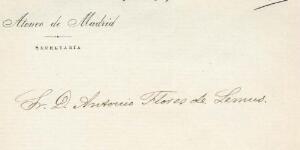 Ateneo de Madrid
SECRETARÍA
Sr. D. Antonio Flores de Lemus.